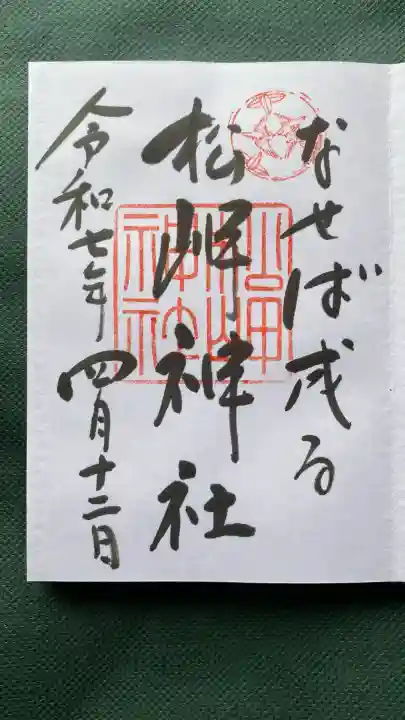 なせば成る
松岬神社
令和七年 四月十二日